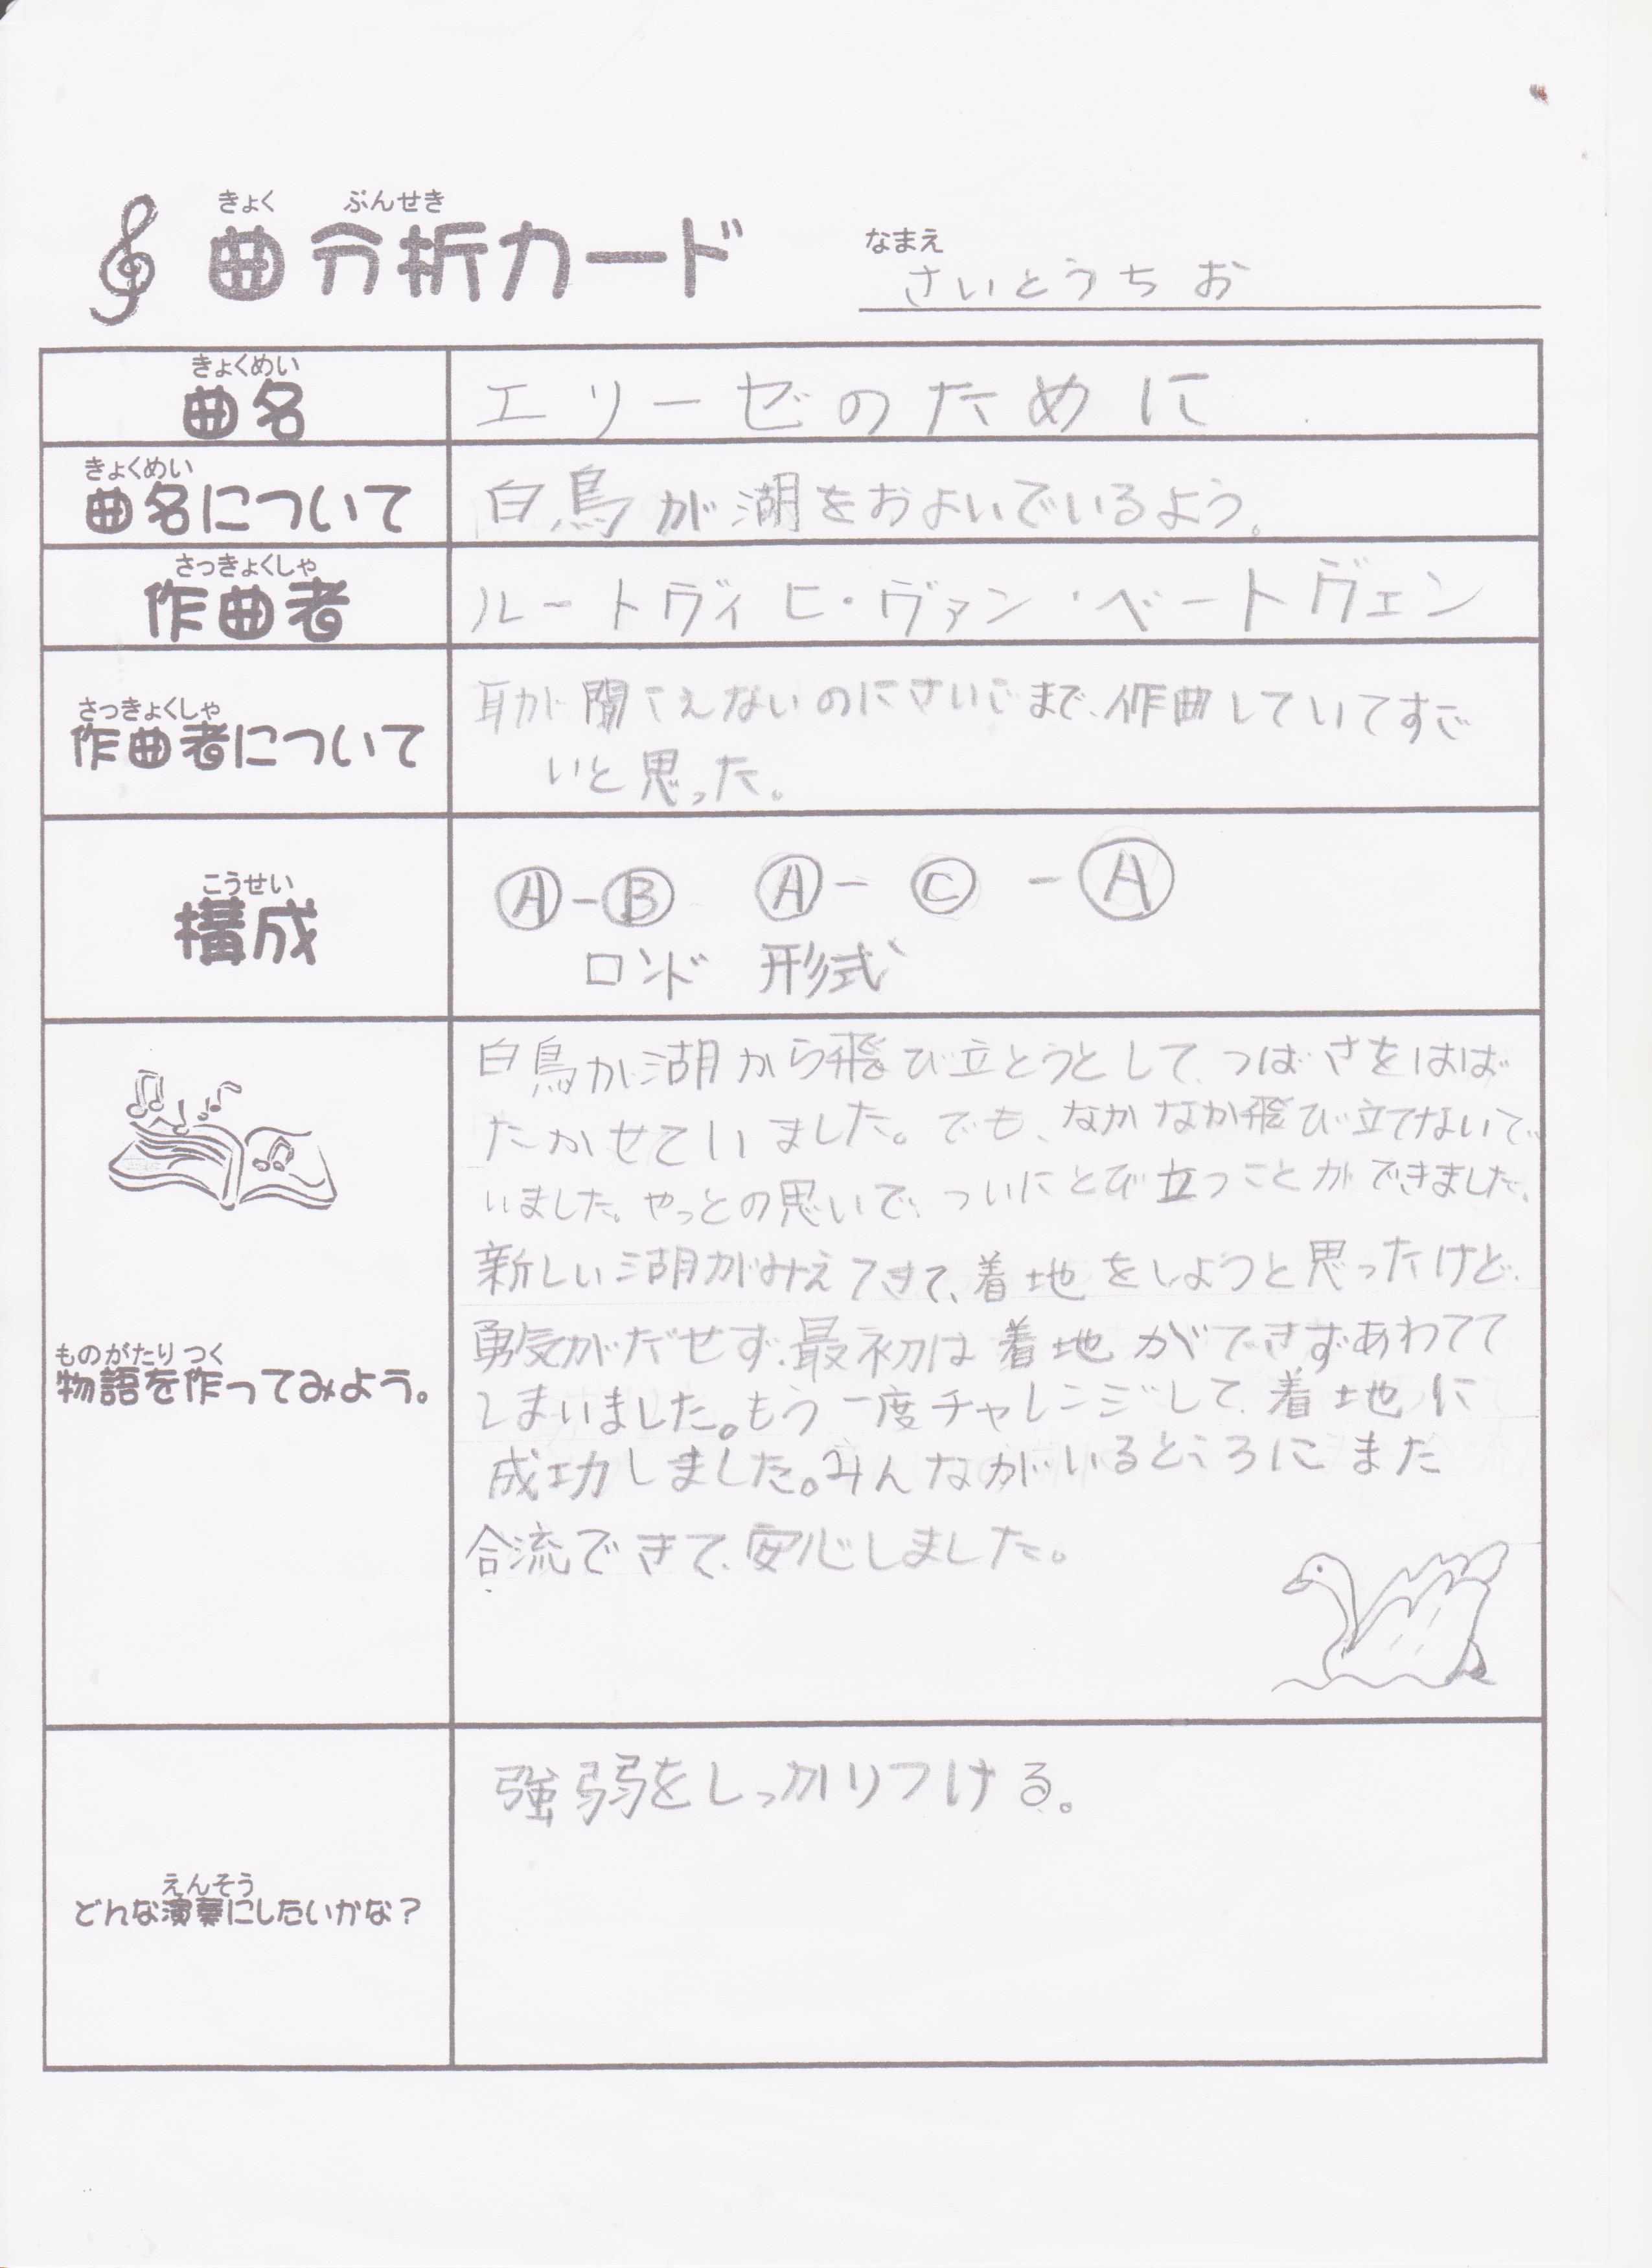 きょく ぶんせき
曲分析カード
なまえ
さいとうちお
きょくめい
曲名
エリーゼのために
きょくめい
曲名について
白鳥が湖をおよいでいるよう。
さっきょくしゃ
作曲者
ルートヴィヒ・ヴァン・ベートヴェン
さっきょくしゃ
作曲者について
耳が聞こえないのにさいごまで、作曲していてすご
いと思った。
こうせい
構成
Ⓐ-Ⓑ Ⓐ-Ⓒ-Ⓐ
ロンド形式
ものがたり つく
物語を作ってみよう。
白鳥が湖から飛び立とうとして、つばさをはば
たかせていました。でも、なかなか飛び立てないで
いました。やっとの思いで、ついにとび立つことができました。
新しい湖がみえてきて、着地をしようと思ったけど、
勇気がだせず、最初は着地ができずあわてて
しまいました。もう一度チャレンジして、着地に
成功しました。みんながいるところにまた
合流できて、安心しました。
えんそう
どんな演奏にしたいかな?
強弱をしっかりつける。